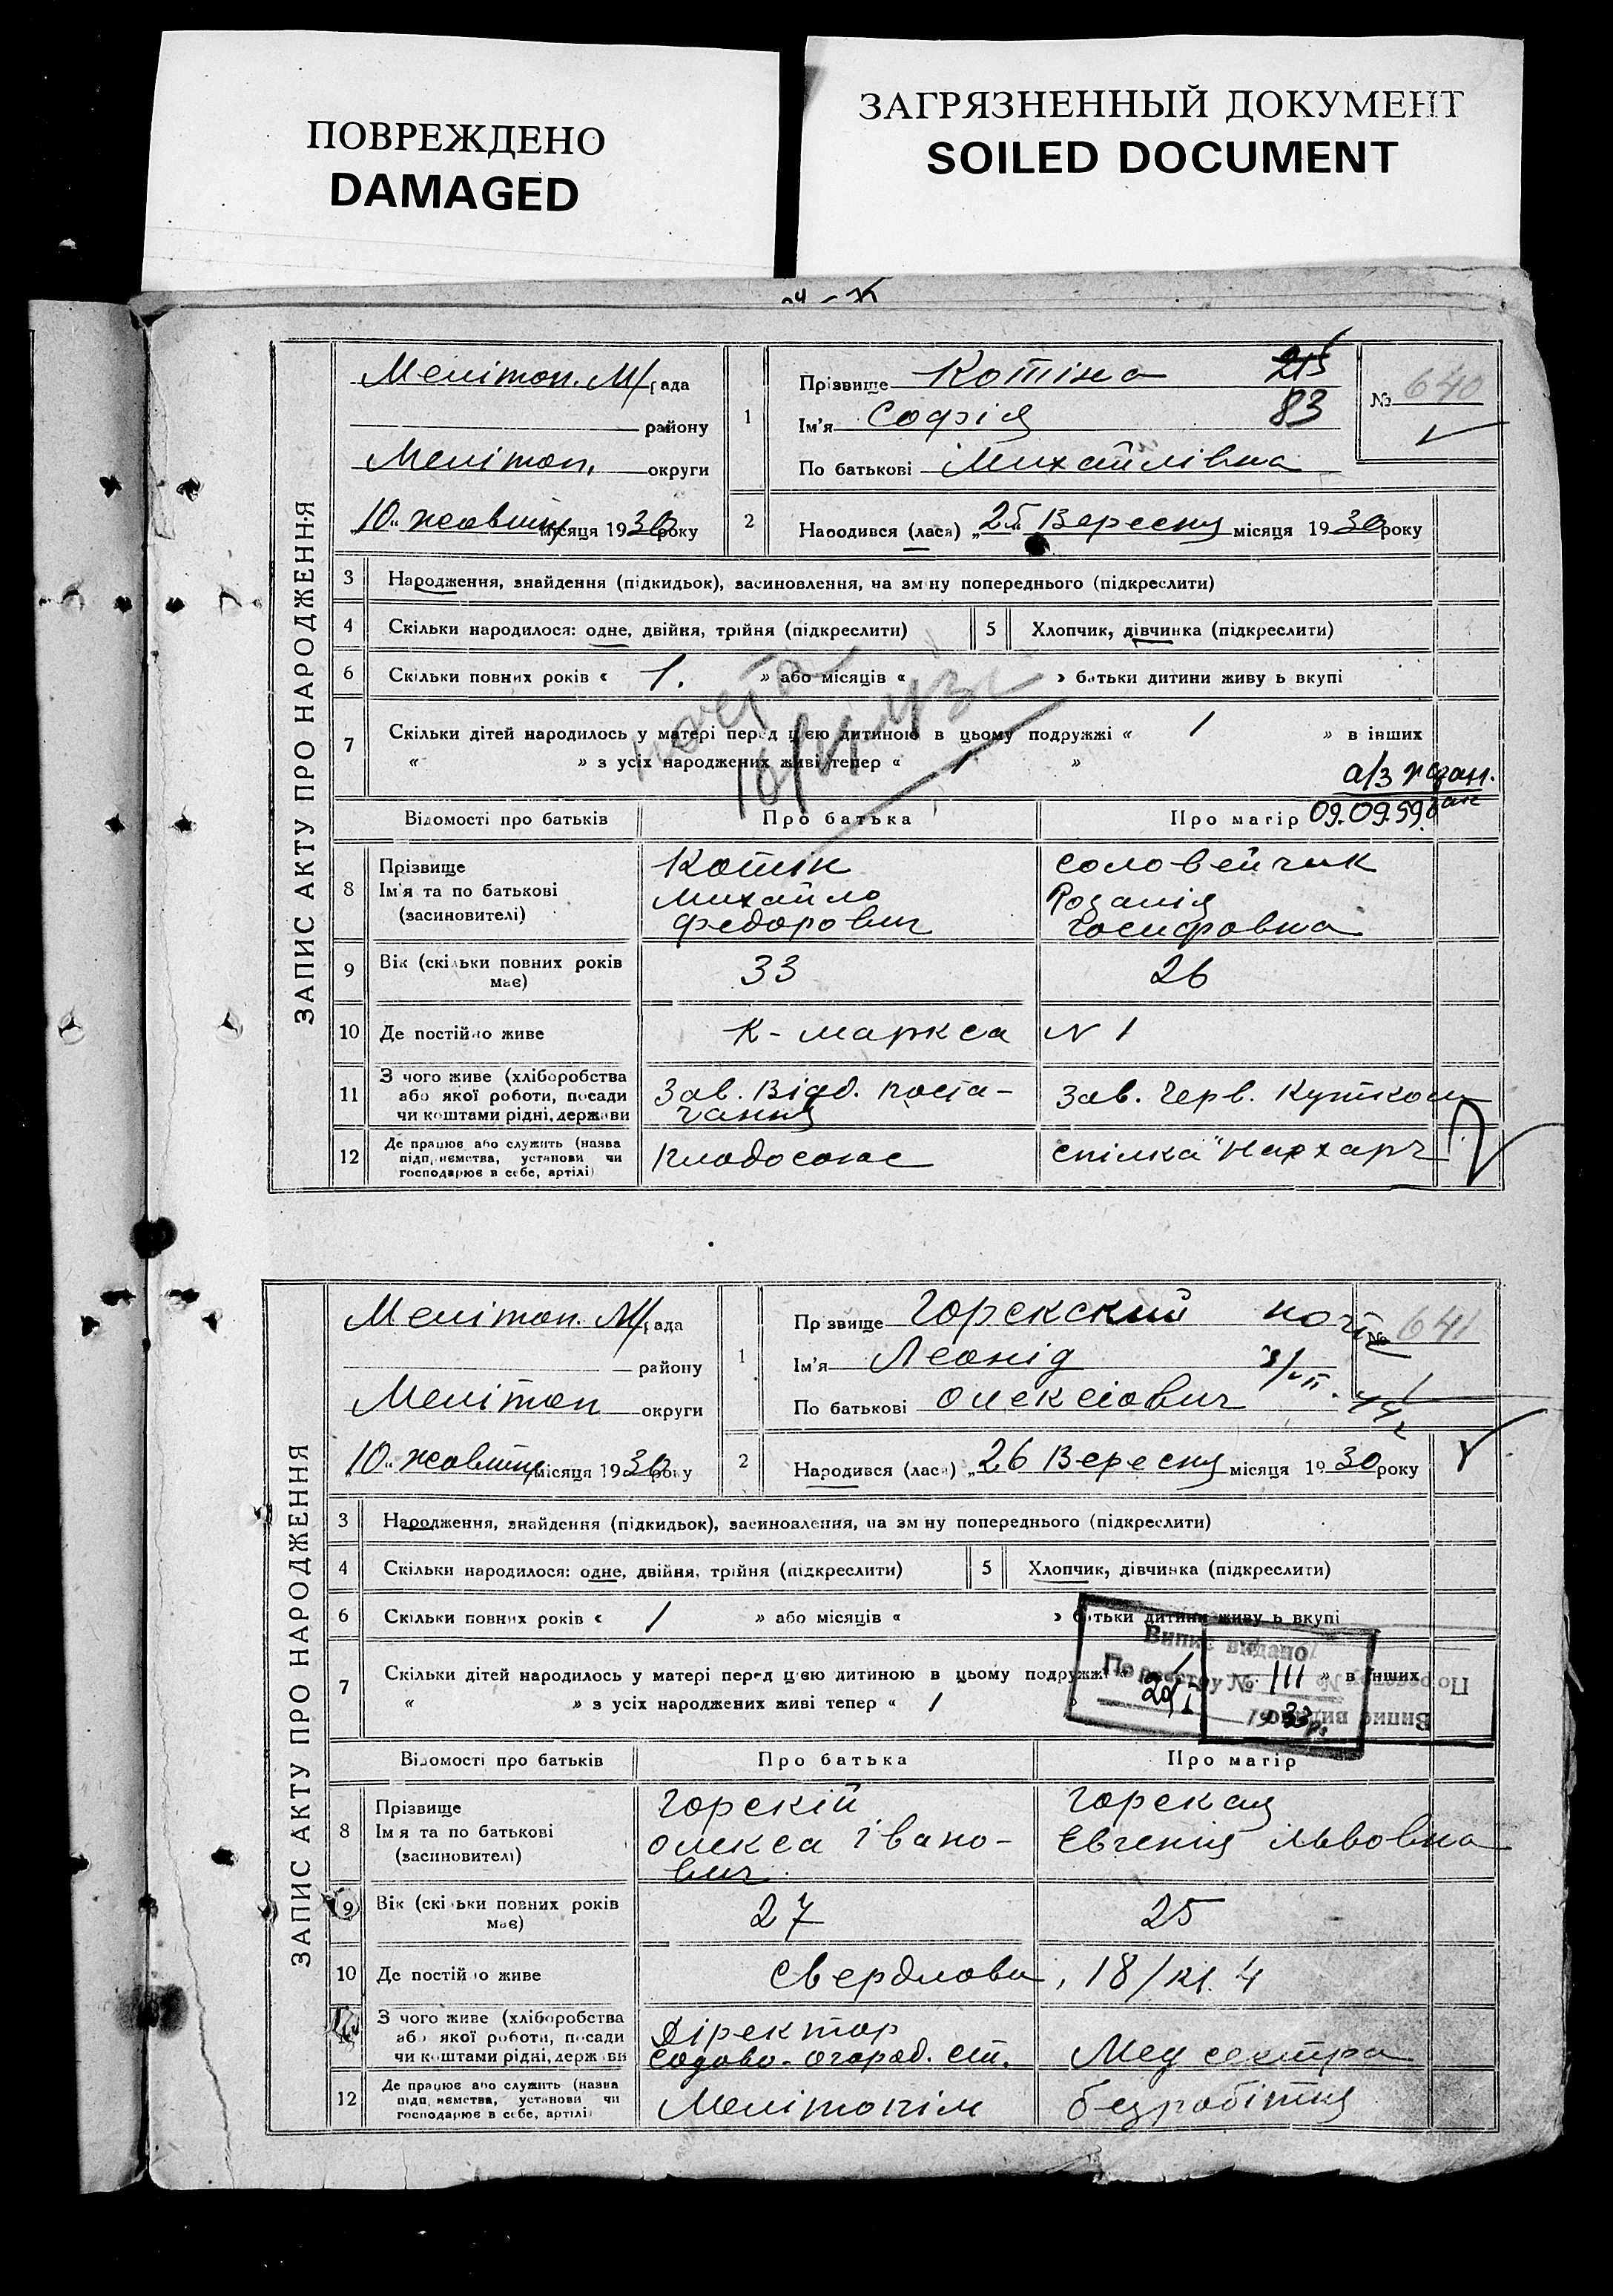 ПОВРЕЖДЕНО
DAMAGED
ЗАГРЯЗНЕННЫЙ ДОКУМЕНТ
SOILED DOCUMENT
ЗАПИС АКТУ ПРО НАРОДЖЕННЯ
Меліт��п. М/рада
району
Меліт��п. округи
"10" жовтня місяця 1930 року
1
Прізвище Котіна 215
Ім'я Софія 83
По батькові Михайлівна
№ 640
2
Народився (лася) „25" Вересня місяця 1930 року
3 Народження, знайдення (підкидьок), засиновлення, на зміну попереднього (підкреслити)
4 Скільки народилося: одне, двійня, трійня (підкреслити)
5 Хлопчик, дівчинка (підкреслити)
6 Скільки повних років « 1. » або місяців « » батьки дитини живуть вкупі
7 Скільки дітей народилось у матері перед цією дитиною в цьому подружжі « 1 » в інших
« » з усіх народжених живі тепер « 1 »
09.09.59
Відомості про батьків Про батька Про матір
8 Прізвище
Ім'я та по батькові
(засиновителі)
Котін
Михайло
Федорович
Соловейчик
Розалія
Йосифовна
9 Вік (скільки повних років має) 33 26
10 Де постійно живе К-Маркса N 1
11 З чого живе (хліборобства
або якої роботи, посади
чи коштами рідні, держави
Зав. Відд. поста-
чання
Зав. Черв. Кутком
12 Де працює або служить (назва
підприємства, установи чи
господарює в себе, артілі)
Плодосоюс
спілка "Нархарч
ЗАПИС АКТУ ПРО НАРОДЖЕННЯ
Мелітоп. М/рада
району
Мелітоп округи
"10" жовтня місяця 1930 року
1
Прізвище Горскский
Ім'я Леонід
По батькові Олексіович
№ 641
2
Народився (лася) „26 Вересня місяця 1930 року
3 Народження, знайдення (підкидьок), засиновлення, на зміну попереднього (підкреслити)
4 Скільки народилося: одне, двійня, трійня (підкреслити)
5 Хлопчик, дівчинка (підкреслити)
6 Скільки повних років « 1 » або місяців « » батьки дитини живуть вкупі
7 Скільки дітей народилось у матері перед цією дитиною в цьому подружжі « » в інших
« » з усіх народжених живі тепер « 1 »
Випис видано
По реєстру № 111
Відомості про батьків Про батька Про матір
8 Прізвище
Ім'я та по батькові
(засиновителі)
Горскій
Олекса Івано-
вич
Горская
Евгенія Львовна
9 Вік (скільки повних років має) 27 25
10 Де постійно живе Свердлова, 18/кв. 4
11 З чого живе (хліборобства
або якої роботи, посади
чи коштами рідні, держави
Діректор
Садово-огород. ст.
Мед сестра
12 Де працює або служить (назва
підприємства, установи чи
господарює в себе, артілі)
Мелітопім
безробітня